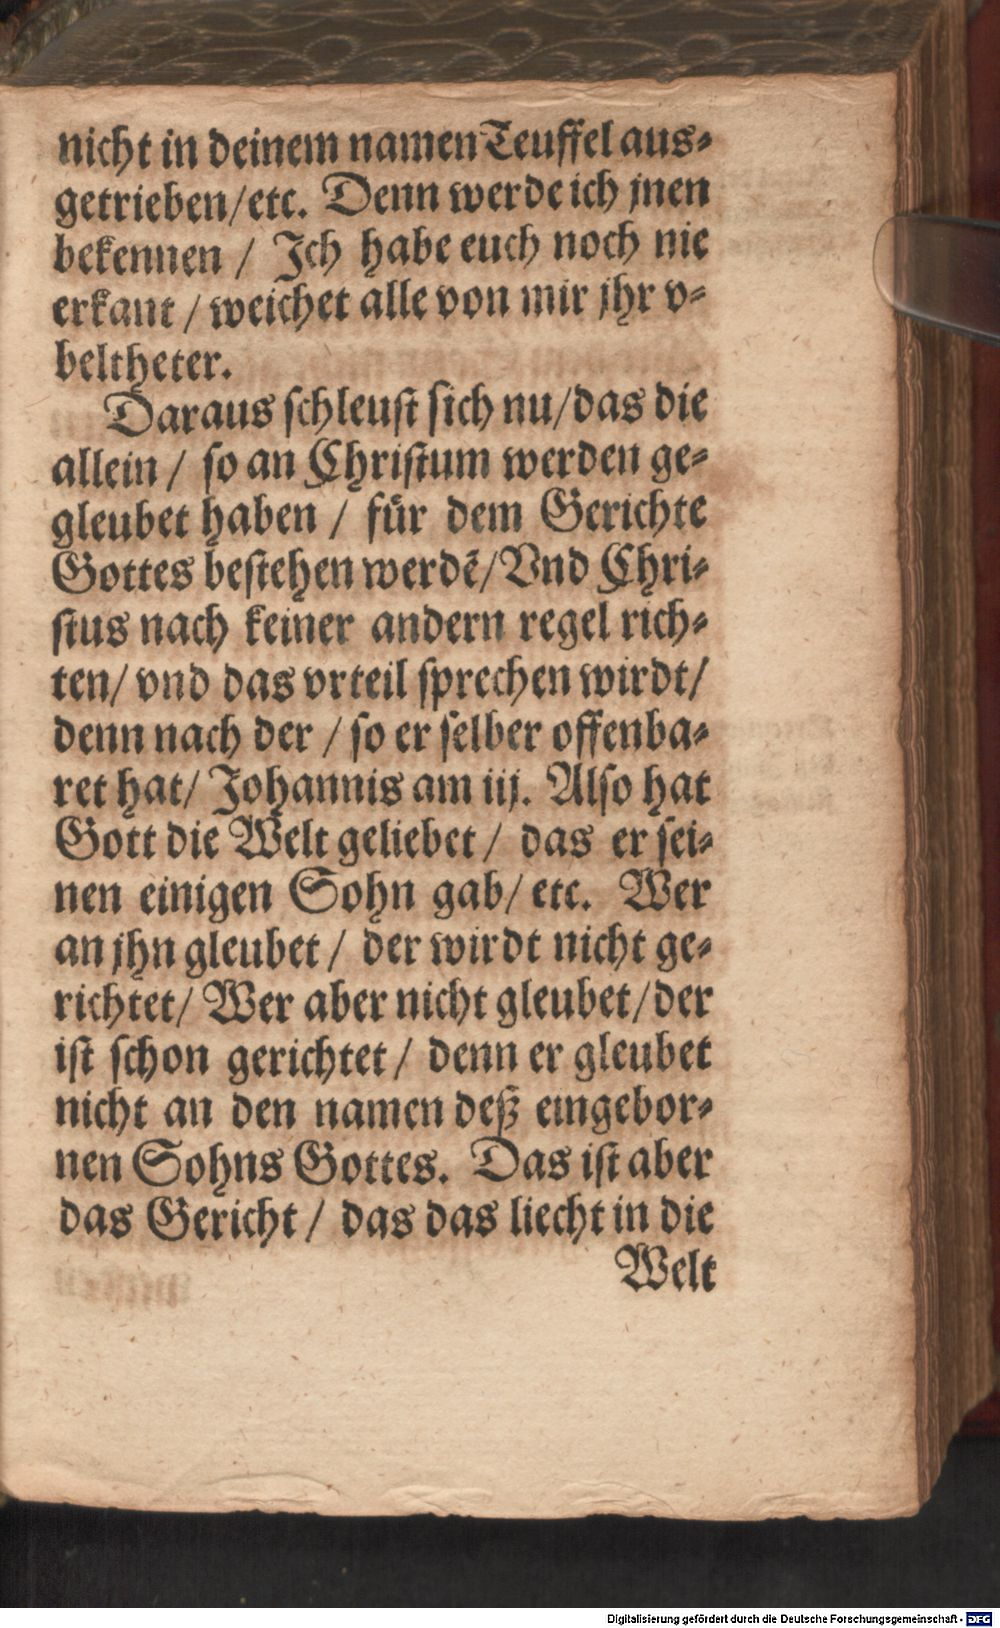 nicht in deinem namen Teuffel aus⸗
getrieben/etc. Denn werde ich jnen
bekennen / Ich habe euch noch nie
erkant / weichet alle von mir jhr v⸗
beltheter.
Daraus schleust sich nu/das die
allein / so an Christum werden ge⸗
gleubet haben / für dem Gerichte
Gottes bestehen werdẽ/Vnd Chri⸗
stus nach keiner andern regel rich⸗
ten/ vnd das vrteil sprechen wirdt/
denn nach der / so er selber offenba⸗
ret hat/ Johannis am iij. Also hat
Gott die Welt geliebet / das er sei⸗
nen einigen Sohn gab/ etc. Wer
an jhn gleubet / der wirdt nicht ge⸗
richtet/ Wer aber nicht gleubet/der
ist schon gerichtet / denn er gleubet
nicht an den namen deß eingebor⸗
nen Sohns Gottes. Das ist aber
das Gericht / das das liecht in die
Welt
Digitalisierung gefördert durch die Deutsche Forschungsgemeinschaft - DFG